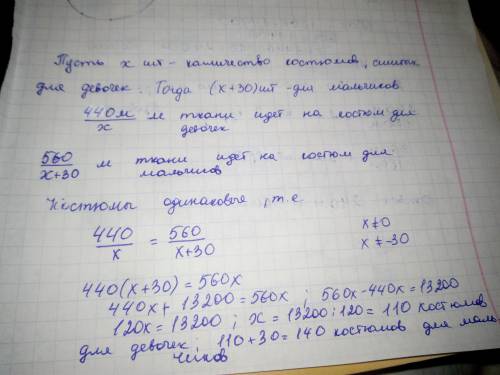 Пусть x шт - количество костюмов, сшитых
для девочек. Тогда (x+30) шт - для мальчиков
440м/x м ткани идет на костюм для девочек
560/x+30 м ткани идет на костюм для мальчиков
Костюмы одинаковые, т.е
440/x = 560/x+30 x≠0
x≠-30
440(x+30)=560x
440x+13200=560x; 560x-440x=13200
120x=13200; x=13200:120=110 костюмов
для девочек; 110+30=140 костюмов для маль-
чиков